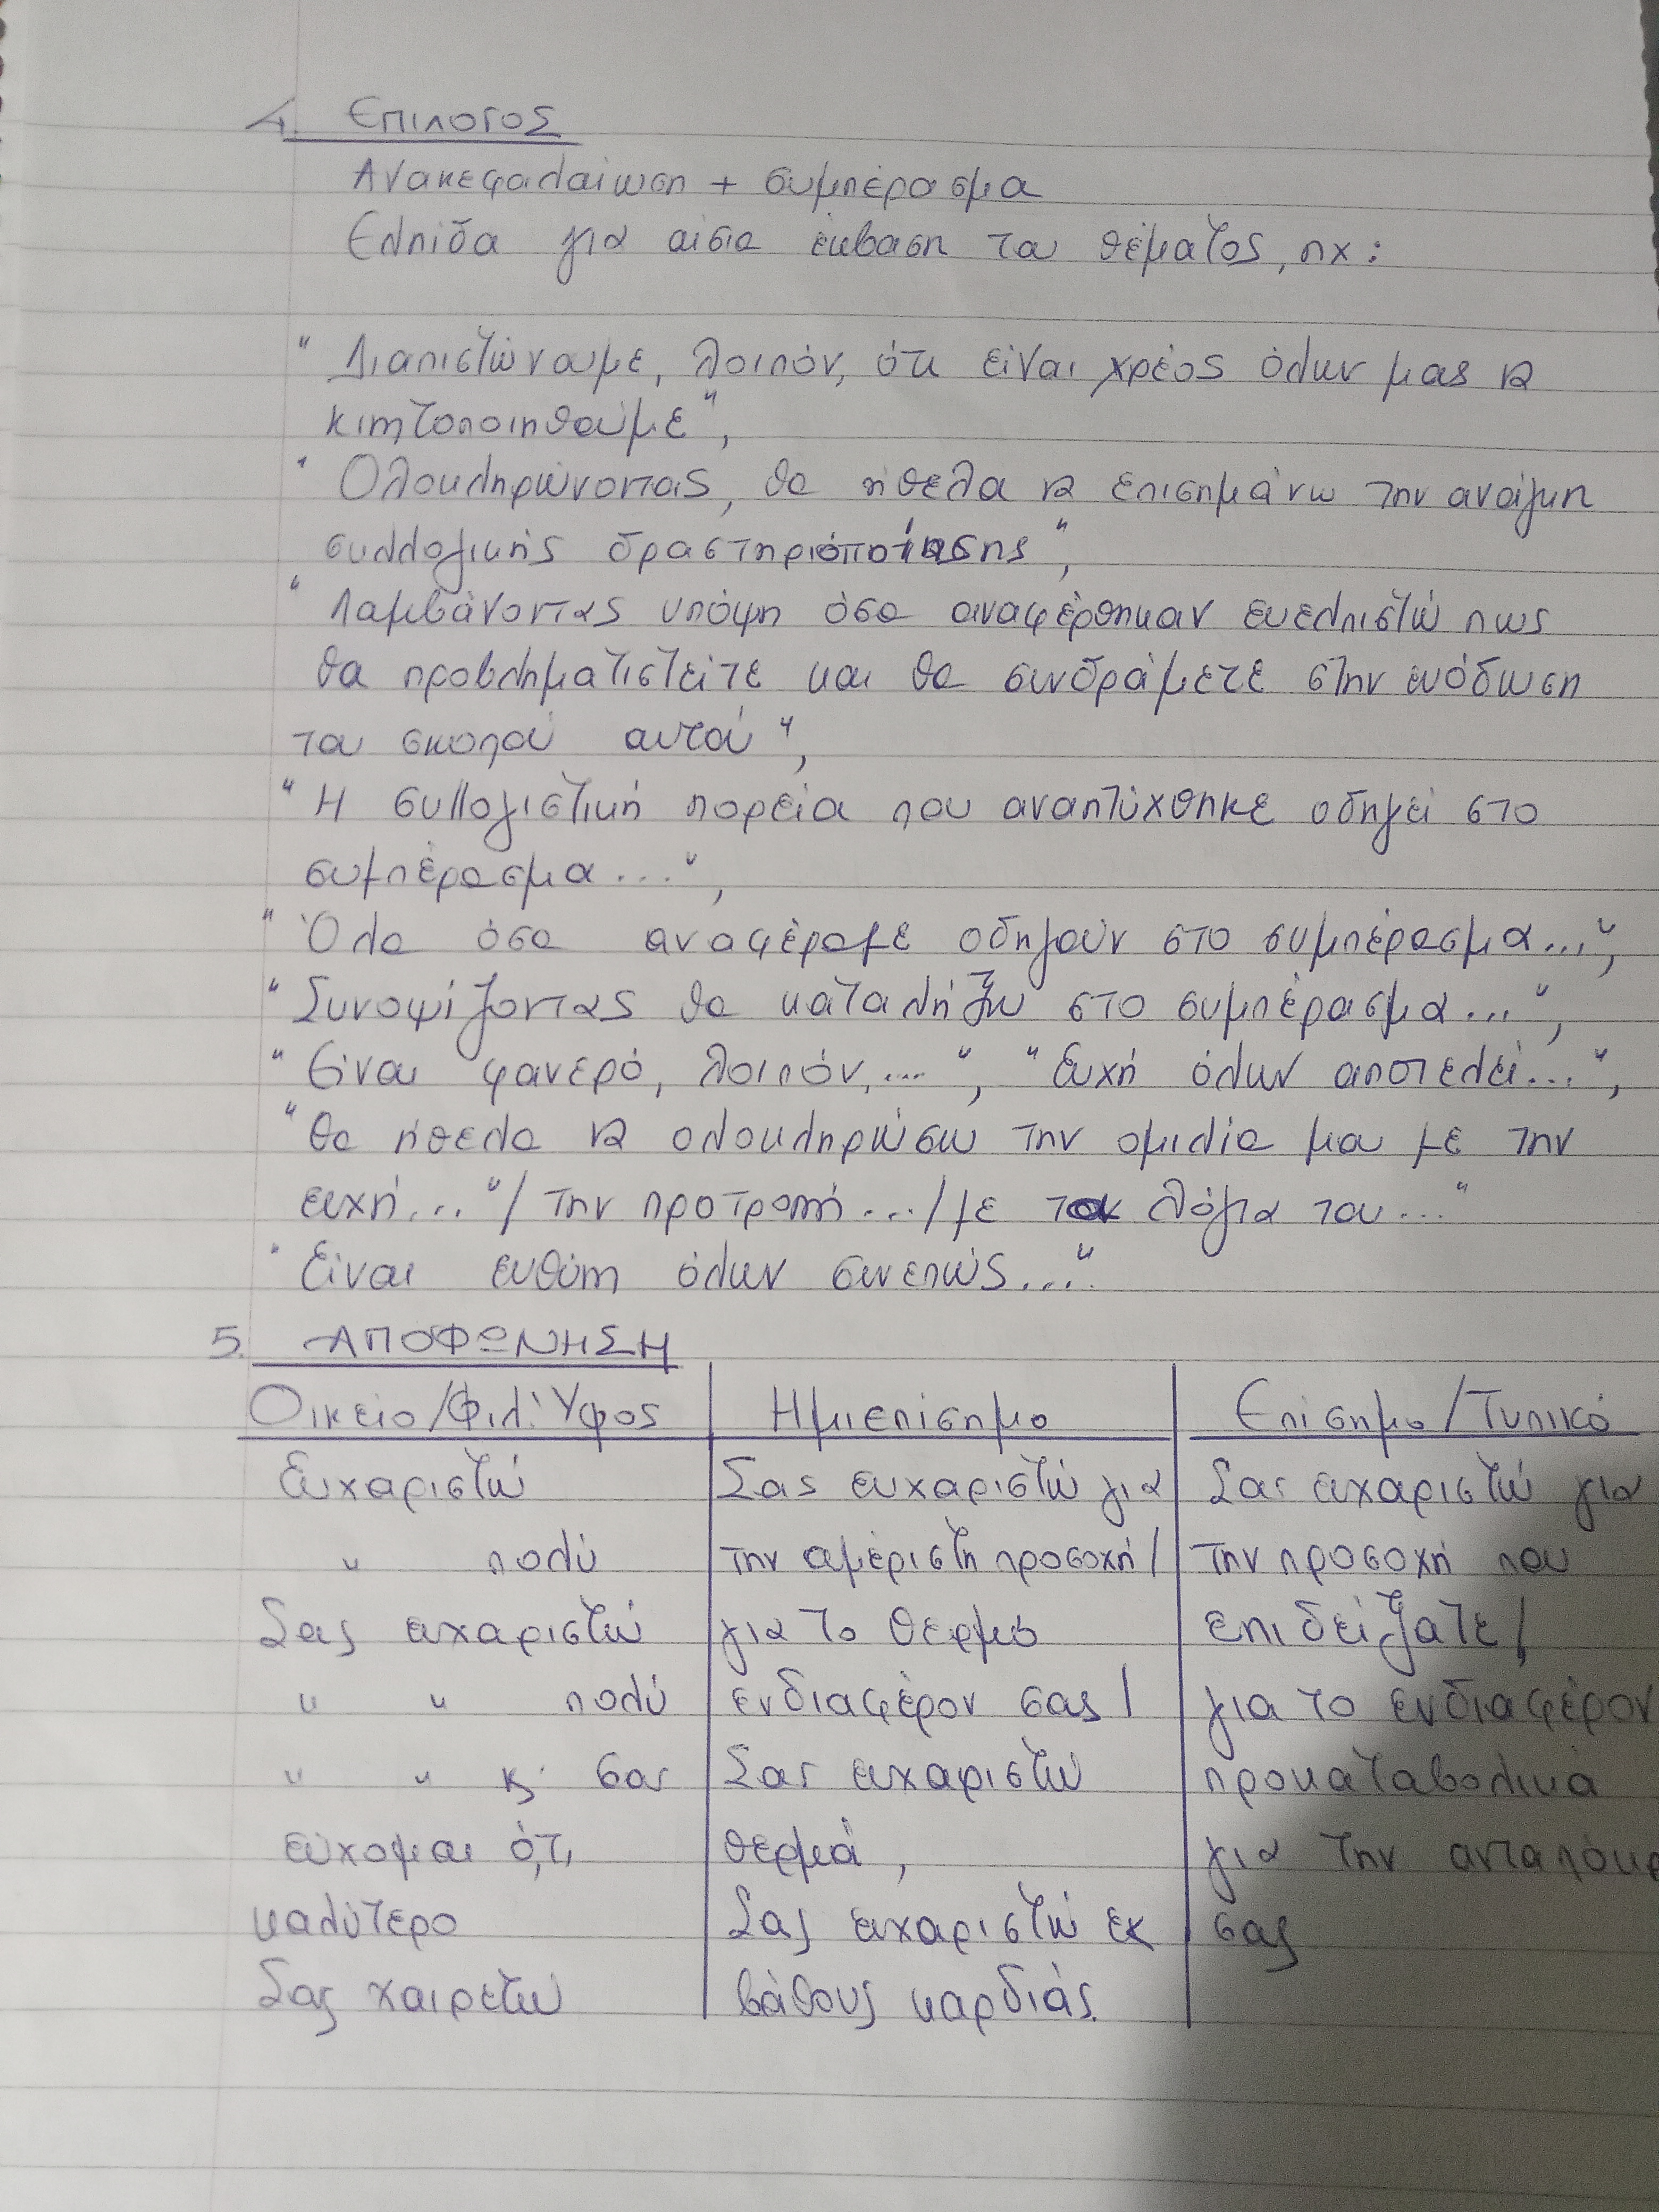 4. ΕΠΙΛΟΓΟΣ
Ανακεφαλαίωση + συμπέρασμα
Ελπίδα για αίσια έκβαση του θέματος, πχ:
" Διαπιστώνουμε, λοιπόν, ότι είναι χρέος όλων μας να
κινητοποιηθούμε",
" Ολοκληρώνοντας, θα ήθελα να επισημάνω την ανάγκη
συλλογικής δραστηριοποίησης",
" Λαμβάνοντας υπόψη όσα αναφέρθηκαν ευελπιστώ πως
θα προβληματιστείτε και θα συνδράμετε στην ευόδωση
του σκοπού αυτού",
" Η συλλογιστική πορεία που αναπτύχθηκε οδηγεί στο
συμπέρασμα...",
" Όλα όσα αναφέραμε οδηγούν στο συμπέρασμα...",
" Συνοψίζοντας θα καταλήξω στο συμπέρασμα...",
" Είναι φανερό, λοιπόν,...", " Ευχή όλων αποτελεί...",
" Θα ήθελα να ολοκληρώσω την ομιλία μου με την
ευχή..."/ την προτροπή.../με τα λόγια του..."
" Είναι ευθύνη όλων συνεπώς....".
5. ΑΠΟΦΩΝΗΣΗ
Οικείο/Φιλ. Ύφος | Ημιεπίσημο | Επίσημο/Τυπικό
Ευχαριστώ | Σας ευχαριστώ για | Σας ευχαριστώ για
" πολύ | την αμέριστη προσοχή/ | την προσοχή που
Σας ευχαριστώ | για το θερμό | επιδείξατε/
" " πολύ | ενδιαφέρον σας/ | για το ενδιαφέρον
" " κ' σας | Σας ευχαριστώ | προκαταβολικά
εύχομαι ό,τι | θερμά, | για την
καλύτερο | Σας ευχαριστώ εκ | σας
Σας χαιρετώ | βάθους καρδιάς.